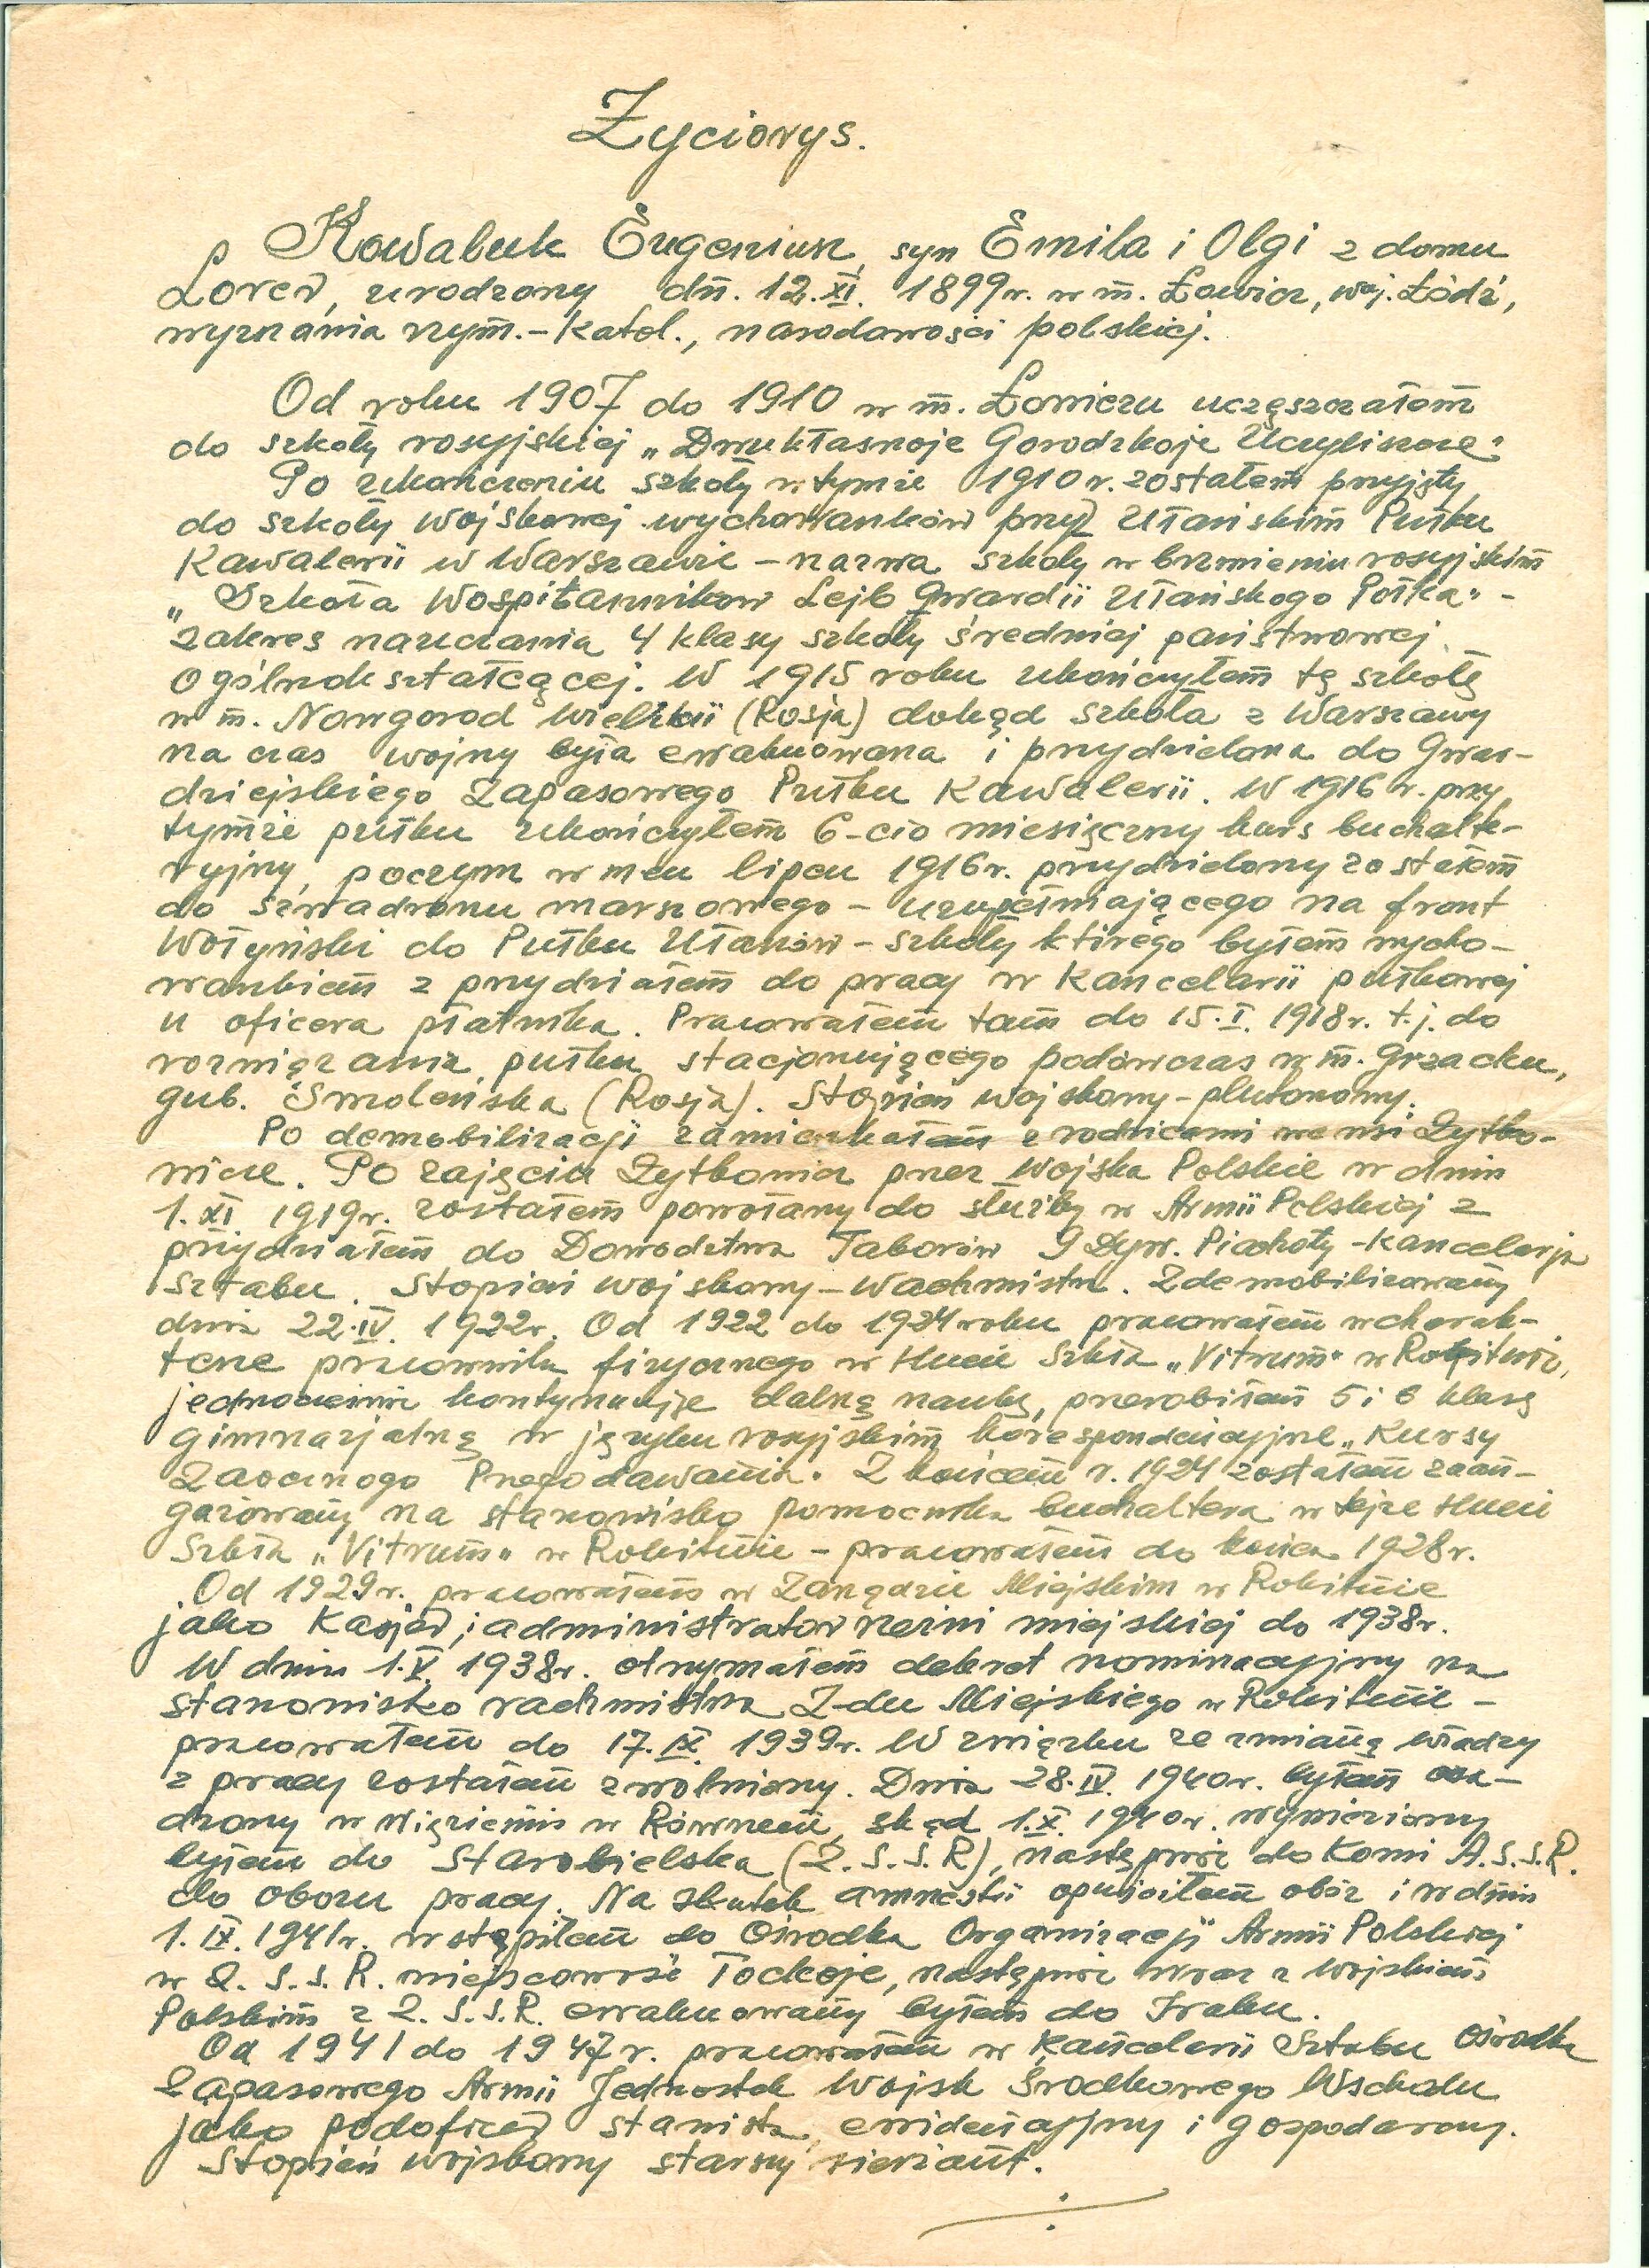 Życiorys.
Kowaluk Eugeniusz, syn Emila i Olgi z domu
Lorer, urodzony dń. 12.XI. 1899r. w m. Łowicz, woj. Łódź,
wyznania rzym.-katol., narodowości polskiej.
Od roku 1907 do 1910 w m. Łowiczu uczęszczałem
do szkoły rosyjskiej „Dwukłasnoje Gorodzkoje Ucyliszcze"
Po ukończeniu szkoły w tymże 1910 r. zostałem przyjęty
do szkoły wojskowej wychowanków przy Ułańskim Pułku
Kawalerii w Warszawie – nazwa szkoły w brzmieniu rosyjskim
„Szkoła Wospitannikow Lejb Gwardii Ułańskogo Połka" -
zakres nauczania 4 klasy szkoły średniej państwowej
ogólnokształcącej. W 1915 roku ukończyłem tę szkołę
w m. Nowgorod Wielikii (Rosja) dokąd szkoła z Warszawy
na czas wojny była ewakuowana i przydzielona do Gwar-
dziejskiego Zapasowego Pułku Kawalerii. W 1916 r. przy
tymże pułku ukończyłem 6-cio miesięczny kurs buchalte-
ryjny, poczym w m-cu lipcu 1916r. przydzielony zostałem
do szwadronu marszowego – uzupełniającego na front
Wołyński do Pułku Ułanów – szkoły którego byłem wycho-
wankiem z przydziałem do pracy w kancelarii pułkowej
u oficera płatnika. Pracowałem tam do 15.I. 1918r. t.j. do
rozwiązania pułku stacjonującego podówczas w m. Grzacku,
gub. Smoleńska (Rosja). Stopień wojskowy – plutonowy.
Po demobilizacji zamieszkałem z rodzicami we wsi Żytko-
wicze. Po zajęciu Żytkowicz przez Wojska Polskie w dniu
1.XI. 1919r. zostałem powołany do służby w Armii Polskiej z
przydziałem do Dowództwa Taborów 9 Dyw. Piechoty - kancelarja
Sztabu. Stopień wojskowy – wachmistrz. Zdemobilizowany
dnia 22.IV. 1922r. Od 1922 do 1924 roku pracowałem w charak-
terze pracownika fizycznego w Hucie Szkła „Vitrum" w Rokitnie,
jednocześnie kontynuuję dalszą naukę, przerobiłem 5 i 6 klasę
gimnazjalną w języku rosyjskim korespondencyjne „Kursy
Zaocznogo Prepodawania. Z końcem r. 1924 zostałem zaan-
gażowany na stanowisko pomocnika buchaltera w tejże Hucie
Szkła „Vitrum" w Rokitnie – pracowałem do końca 1928r.
Od 1929r. pracowałem w Zarządzie Miejskim w Rokitnie
jako Kasjer i administrator rzeźni miejskiej do 1938r.
W dniu 1.V. 1938r. otrzymałem dekret nominacyjny na
stanowisko rachmistrza Z-du Miejskiego w Rokitnie –
pracowałem do 17.IX. 1939r. W związku ze zmianą władzy
z pracy zostałem zwolniony. Dnia 28.IV. 1940r. byłem osa-
dzony w więzieniu w Równem, skąd 1.X. 1940r. wywieziony
byłem do Starobielska (Z.S.S.R), następnie do Komi A.S.S.R.
do obozu pracy. Na skutek amnestii opuściłem obóz i w dniu
1.IX. 1941r. wstąpiłem do Ośrodka Organizacji Armii Polskiej
w Z.S.S.R. miejscowość Tockoje, następnie wraz z Wojskiem
Polskim z Z.S.S.R. ewakuowany byłem do Iraku.
Od 1941 do 1947 r. pracowałem w Kancelerii Sztabu Ośrodka
Zapasowego Armii Jednostek Wojsk Środkowego Wschodu
jako podoficer stanista, ewidencyjny i gospodarczy.
Stopień wojskowy starszy sierżant.